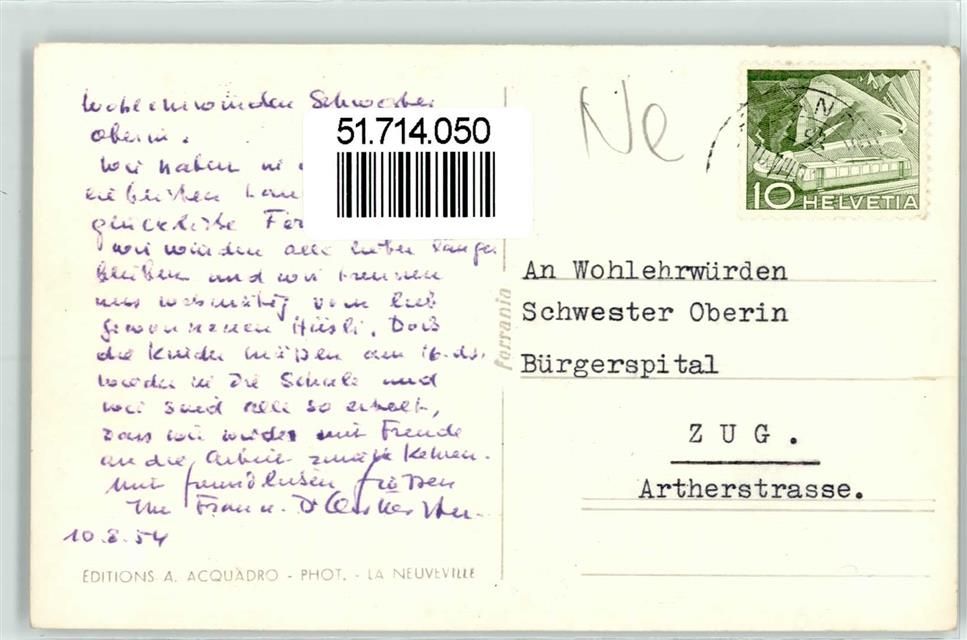 Wohlehrwürden Schwester
Oberin.
Wir haben in
glückliche
wir würden alle lieber länger
bleiben und wir trennen
uns vom lieb
gewonnenen Hüsli. Doch
die Kinder müssen am 16. ds.
wieder in die Schule und
wir sind alle so erholt,
dass wir wieder mit Freude
an die Arbeit zurück kehren.
Mit freundlichen Grüssen
Ihre Frau u. Dr
10.8.54
EDITIONS A. ACQUADRO - PHOT. - LA NEUVEVILLE
51.714.050
ferrania
Ne
10 HELVETIA
An Wohlehrwürden
Schwester Oberin
Bürgerspital
ZUG.
Artherstrasse.